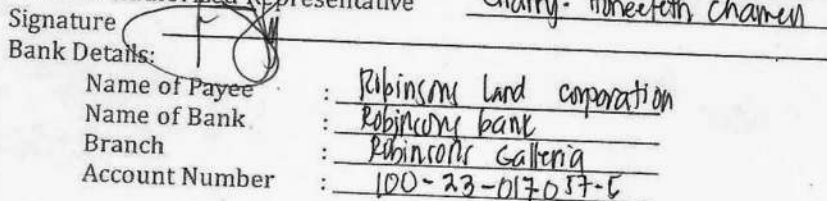 Representative chamen
Signature
Bank Details:
Name of Payee : Robinsons Land corporation
Name of Bank : Robinsons bank
Branch : Robinsons Galleria
Account Number : 100-23-017057-